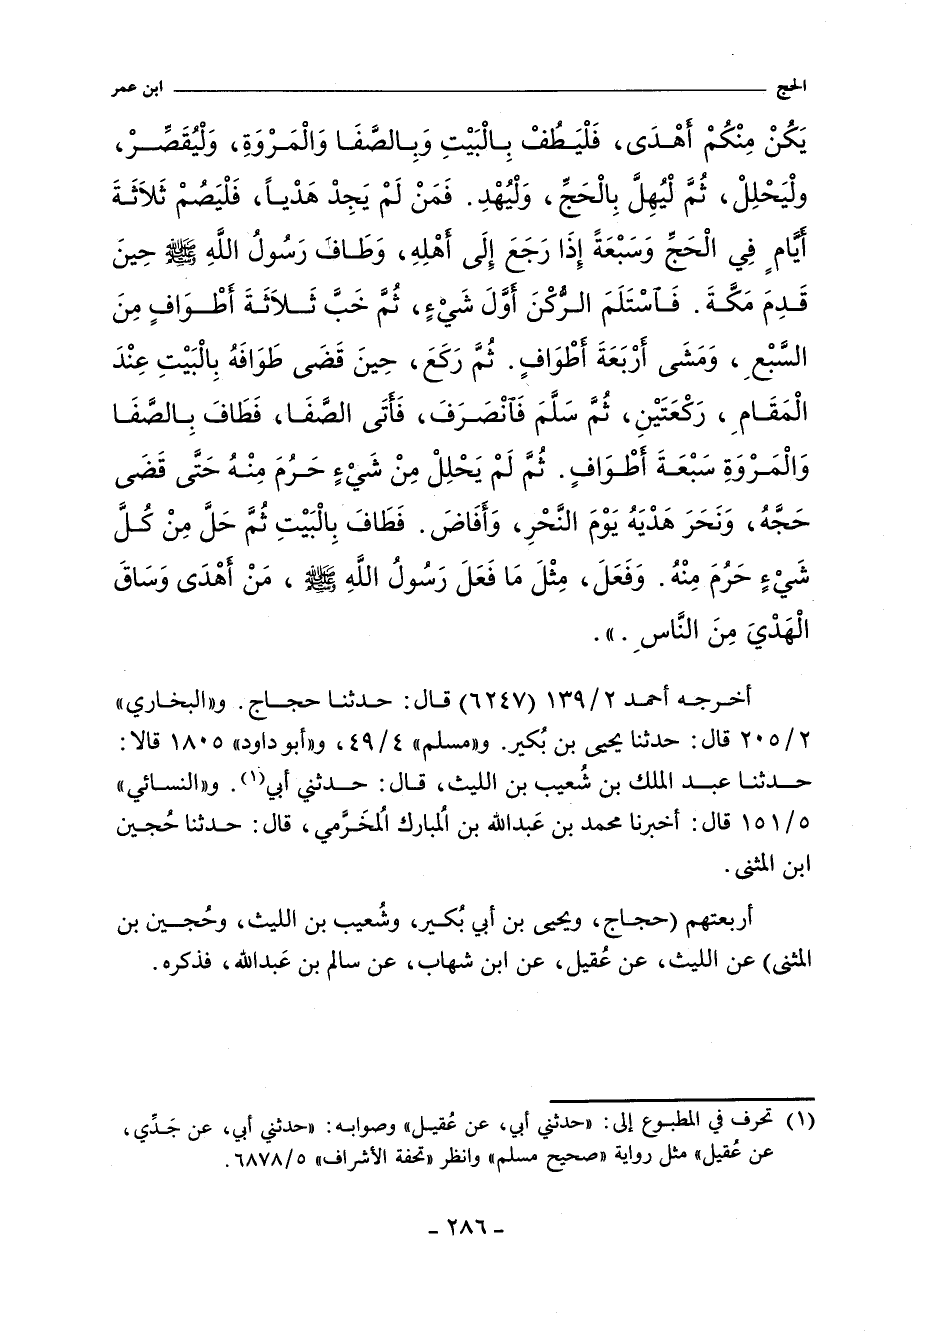 الحج ــــــــــــــــــــــــــــــــــــــــ ابن عمر
يَكُنْ مِنْكُمْ أَهْدَى، فَلْيَطُفْ بِالْبَيْتِ وَبِالصَّفَا وَالْمَرْوَةِ، وَلْيُقَصِّرْ،
ولْيَحْلِلْ، ثُمَّ لْيُهِلَّ بِالْحَجِّ، وَلْيُهْدِ. فَمَنْ لَمْ يَجِدْ هَدْياً، فَلْيَصُمْ ثَلاَثَةَ
أَيَّامٍ فِي الْحَجِّ وَسَبْعَةً إِذَا رَجَعَ إِلَى أَهْلِهِ، وَطَافَ رَسُولُ اللَّهِ ﷺ حِينَ
قَدِمَ مَكَّةَ. فَاسْتَلَمَ الرُّكْنَ أَوَّلَ شَيْءٍ، ثُمَّ خَبَّ ثَلاَثَةَ أَطْوَافٍ مِنَ
السَّبْعِ، وَمَشَى أَرْبَعَةَ أَطْوَافٍ. ثُمَّ رَكَعَ، حِينَ قَضَى طَوَافَهُ بِالْبَيْتِ عِنْدَ
الْمَقَامِ، رَكْعَتَيْنِ، ثُمَّ سَلَّمَ فَانْصَرَفَ، فَأَتَى الصَّفَا، فَطَافَ بِالصَّفَا
وَالْمَرْوَةِ سَبْعَةَ أَطْوَافٍ. ثُمَّ لَمْ يَحْلِلْ مِنْ شَيْءٍ حَرُمَ مِنْهُ حَتَّى قَضَى
حَجَّهُ، وَنَحَرَ هَدْيَهُ يَوْمَ النَّحْرِ، وَأَفَاضَ. فَطَافَ بِالْبَيْتِ ثُمَّ حَلَّ مِنْ كُلِّ
شَيْءٍ حَرُمَ مِنْهُ. وَفَعَلَ، مِثْلَ مَا فَعَلَ رَسُولُ اللَّهِ ﷺ، مَنْ أَهْدَى وَسَاقَ
الْهَدْيَ مِنَ النَّاسِ.».
أخرجه أحمد ١٣٩/٢ (٦٢٤٧) قال: حدثنا حجاج. و«البخاري»
٢٠٥/٢ قال: حدثنا يحيى بن بُكير. و«مسلم» ٤٩/٤، و«أبو داود» ١٨٠٥ قالا:
حدثنا عبد الملك بن شُعيب بن الليث، قال: حدثني أبي(١). و«النسائي»
١٥١/٥ قال: أخبرنا محمد بن عَبدالله بن المُبارك المُخَرَّمي، قال: حدثنا حُجين
ابن المثنى.
أربعتهم (حجاج، ويحيى بن أبي بُكير، وشُعيب بن الليث، وحُجين بن
المثنى) عن الليث، عن عُقيل، عن ابن شهاب، عن سالم بن عَبدالله، فذكره.
(١) تحرف في المطبوع إلى: «حدثني أبي، عن عُقيل» وصوابه: «حدثني أبي، عن جَدِّي،
عن عُقيل» مثل رواية «صحيح مسلم» وانظر «تحفة الأشراف» ٦٨٧٨/٥.
- ٢٨٦ -